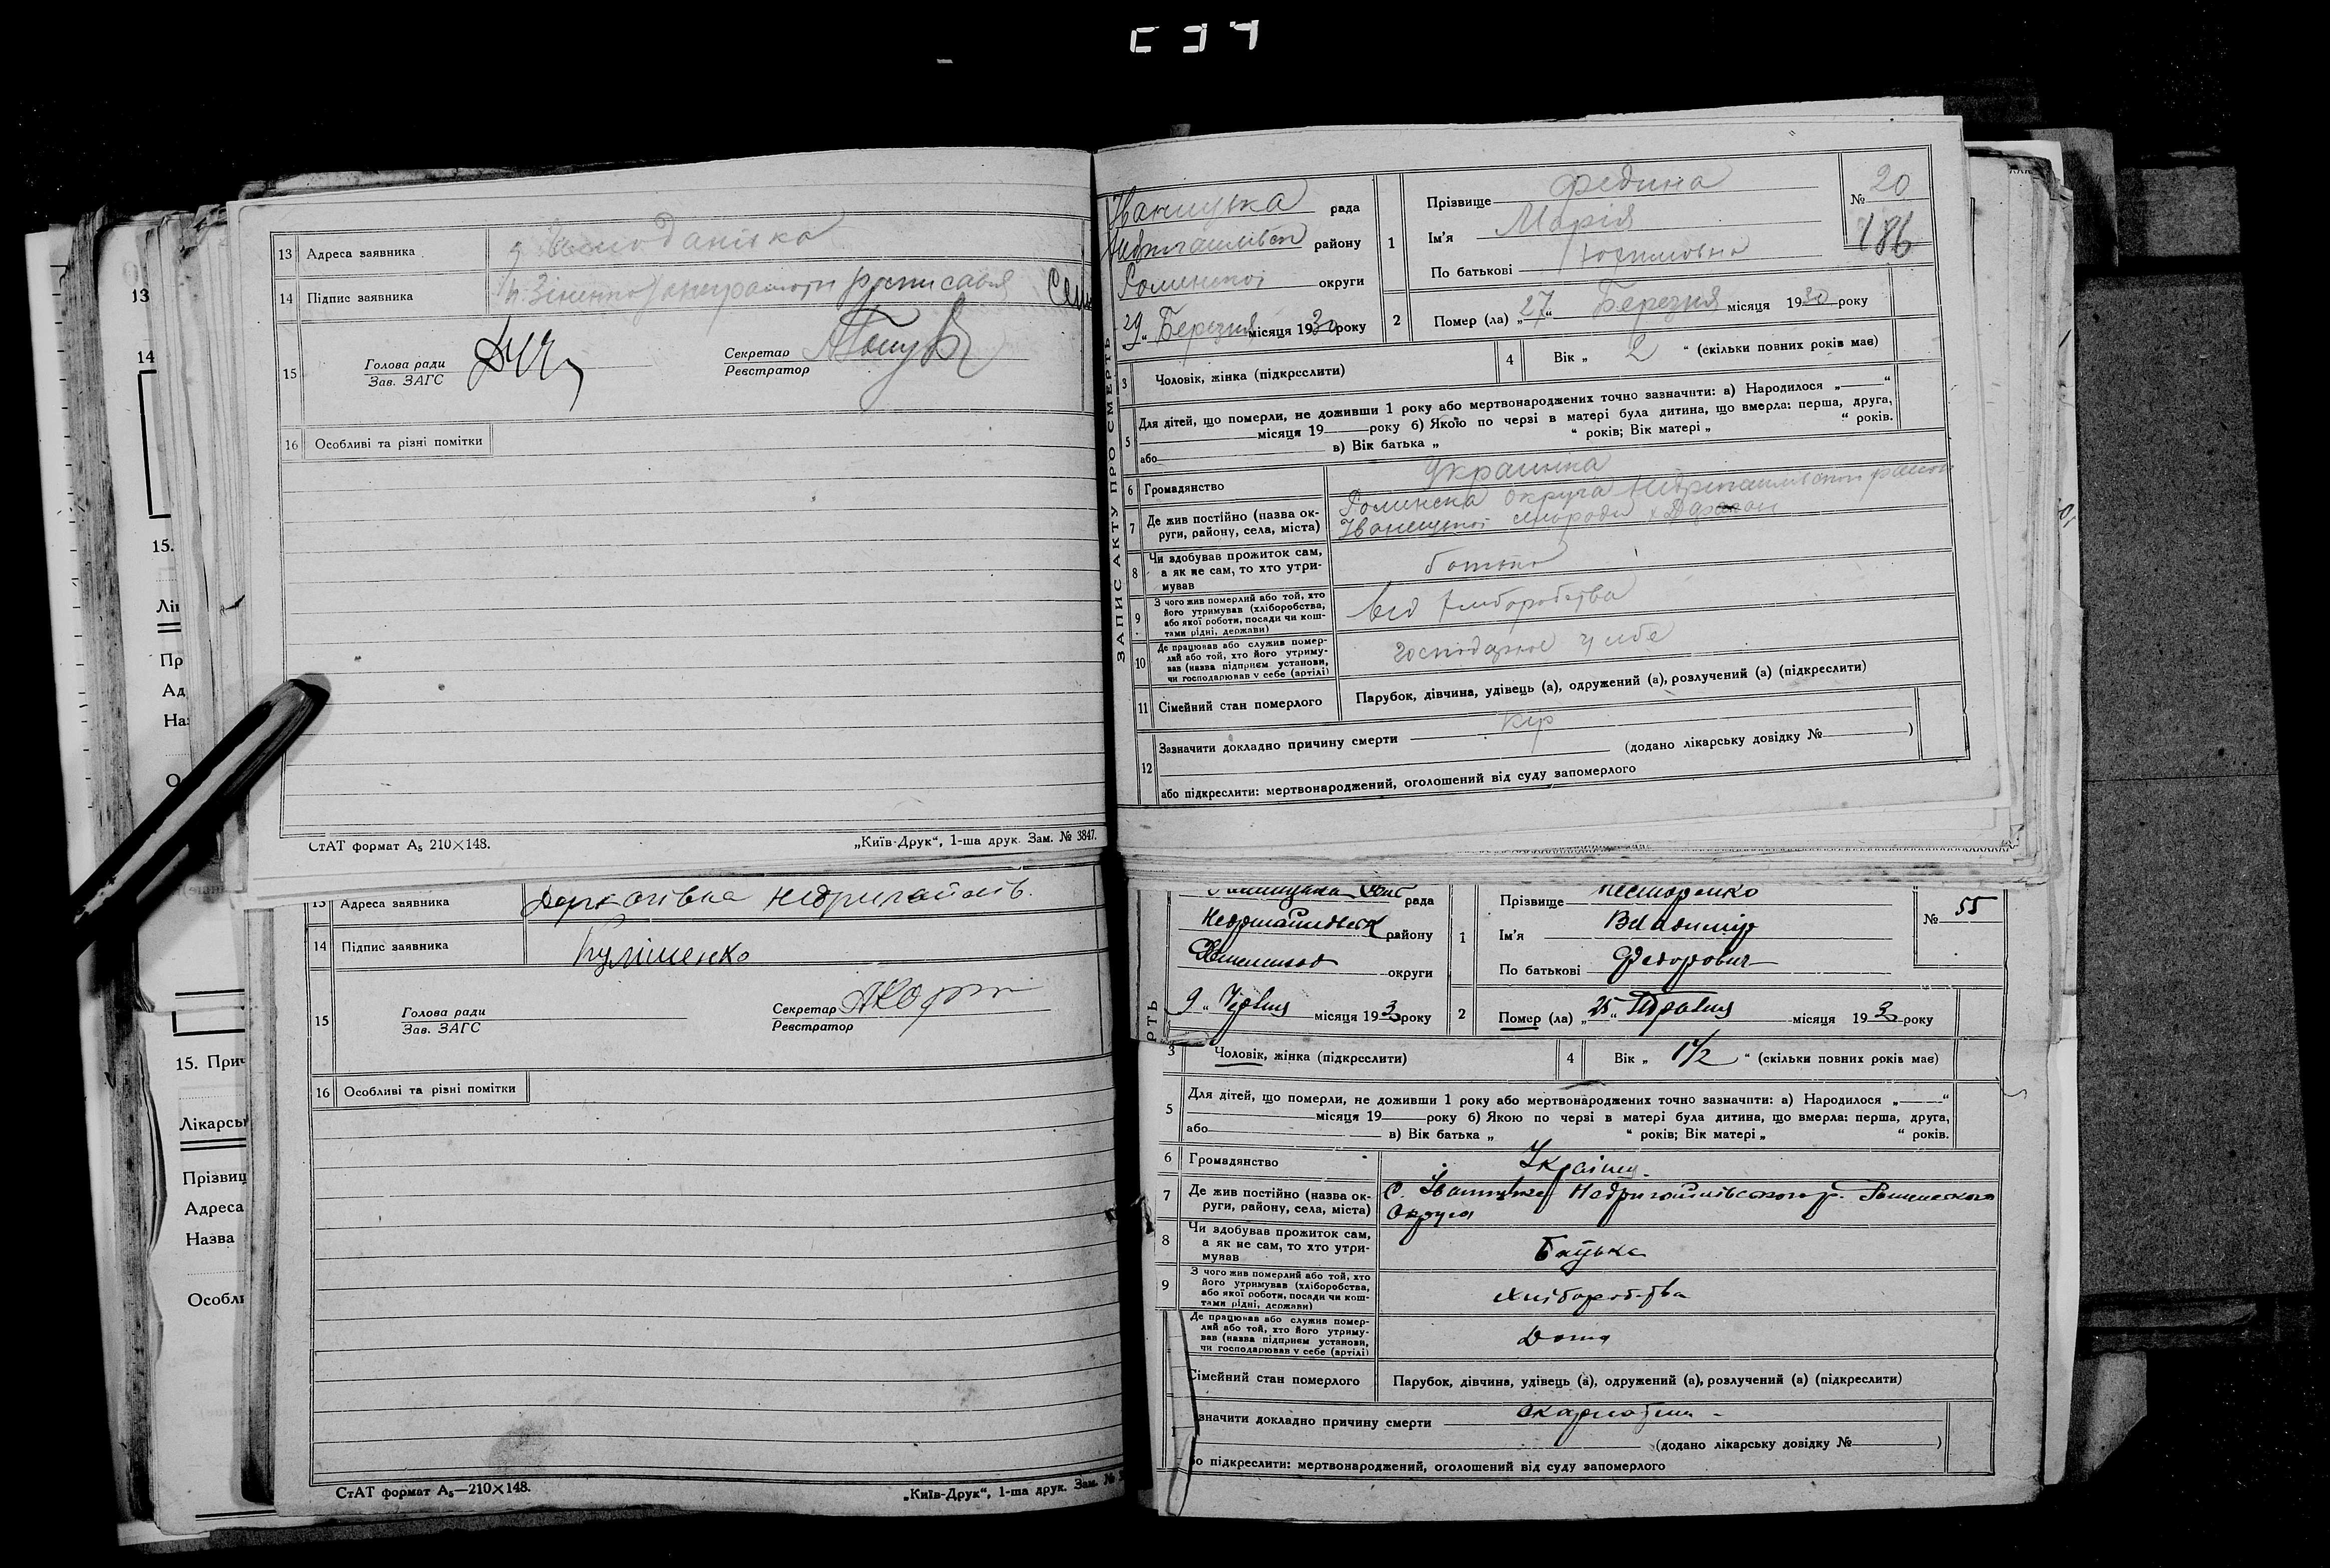 13 Адреса заявника
14 Підпис заявника
15 Голова ради
Зав. ЗАГС
Секретар
Реєстратор
16 Особливі та різні помітки
СтАТ формат А₅ 210×148.
„Київ-Друк“, 1-ша друк. Зам. № 3847.
13
14
15.
Лі
Пр
Ад
На
О
ЗАПИС АКТУ ПРО СМЕРТЬ
Іваницька рада
району
Роменської округи
29 „ Березня місяця 1930 року
1 Прізвище Федина
Ім'я Марія
По батькові Юхимовна
№ 20
186
2 Помер (ла) „27“ Березня місяця 1930 року
3 Чоловік, жінка (підкреслити)
4 Вік „ 2 “ (скільки повних років має)
5 Для дітей, що померли, не доживши 1 року або мертвонароджених точно зазначити: а) Народилося „ “
місяця 19 року б) Якою по черзі в матері була дитина, що вмерла: перша, друга,
або в) Вік батька „ “ років; Вік матері „ “ років.
6 Громадянство Украинка
7 Де жив постійно (назва ок-
руги, району, села, міста)
8 Чи здобував прожиток сам,
а як не сам, то хто утри-
мував
батько
9 З чого жив померлий або той, хто
його утримував (хліборобства,
або якої роботи, посади чи кош-
тами рідні, держави)
від хліборобства
10 Де працював або служив помер-
лий або той, хто його утриму-
вав (назва підприєм установи,
чи господарював у себе (артілі)
у себе
11 Сімейний стан померлого
Парубок, дівчина, удівець (а), одружений (а), розлучений (а) (підкреслити)
12 Зазначити докладно причину смерти кір
(додано лікарську довідку № )
або підкреслити: мертвонароджений, оголошений від суду запомерлого
13 Адреса заявника
14 Підпис заявника Кулішенко
15 Голова ради
Зав. ЗАГС
Секретар
Реєстратор
16 Особливі та різні помітки
СтАТ формат А₅—210×148.
„Київ-Друк“, 1-ша друк. Зам. №
15. Прич
Лікарсь
Прізвищ
Адреса
Назва
Особли
РТЬ
рада
району
округи
9 „ Червня місяця 193 року
1 Прізвище Нестеренко
Ім'я Владимир
По батькові Федорович
№ 55
2 Помер (ла) „25“ Травня місяця 193 року
3 Чоловік, жінка (підкреслити)
4 Вік „ 1½ “ (скільки повних років має)
5 Для дітей, що померли, не доживши 1 року або мертвонароджених точно зазначити: а) Народилося „ “
місяця 19 року б) Якою по черзі в матері була дитина, що вмерла: перша, друга,
або в) Вік батька „ “ років; Вік матері „ “ років.
6 Громадянство
7 Де жив постійно (назва ок-
руги, району, села, міста)
Округа
8 Чи здобував прожиток сам,
а як не сам, то хто утри-
мував
Батька
9 З чого жив померлий або той, хто
його утримував (хліборобства,
або якої роботи, посади чи кош-
тами рідні, держави)
хліборобства
Де працював або служив помер-
лий або той, хто його утриму-
вав (назва підприєм установи,
чи господарював у себе (артілі)
Дома
Сімейний стан померлого
Парубок, дівчина, удівець (а), одружений (а), розлучений (а) (підкреслити)
значити докладно причину смерти
(додано лікарську довідку № )
бо підкреслити: мертвонароджений, оголошений від суду запомерлого